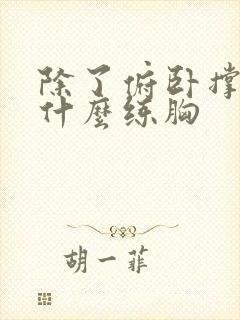 除了俯卧撑
什麽练胸
胡一菲